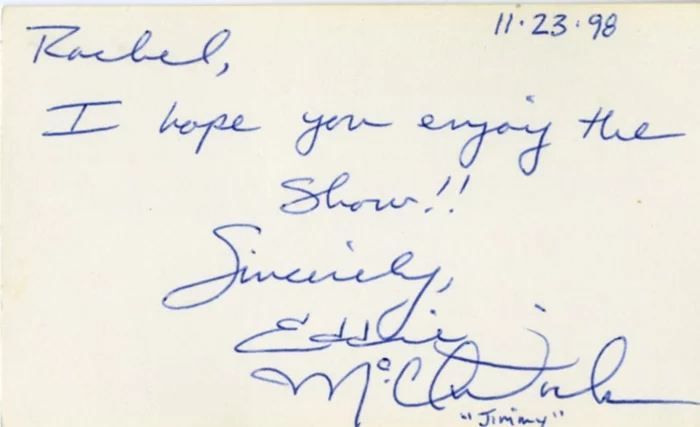 11·23·98
Rachel,
I hope you enjoy the
Show!!
Sincerely,
Eddie
McClintock
"Jimmy"